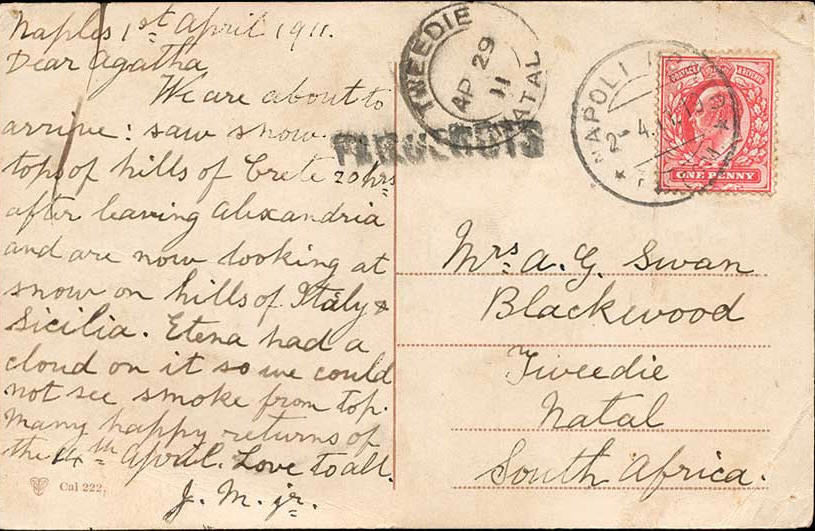 Naples 1st April 1911.
Dear Agatha
We are about to
arrive: saw snow
tops of hills of Crete 20 hrs
after leaving Alexandria
and are now looking at
snow on hills of Italy &
Sicilia. Etena had a
cloud on it so we could
not see smoke from top.
Many happy returns of
the 14th April. Love to all.
J. M. jr.
Cal 222,
TWEEDIE
AP 29
11
NATAL
PAQUEBOTS
NAPOLI
2-4
POSTAGE REVENUE
ONE PENNY
Mrs A. G. Swan
Blackwood
Tweedie
Natal
South Africa.